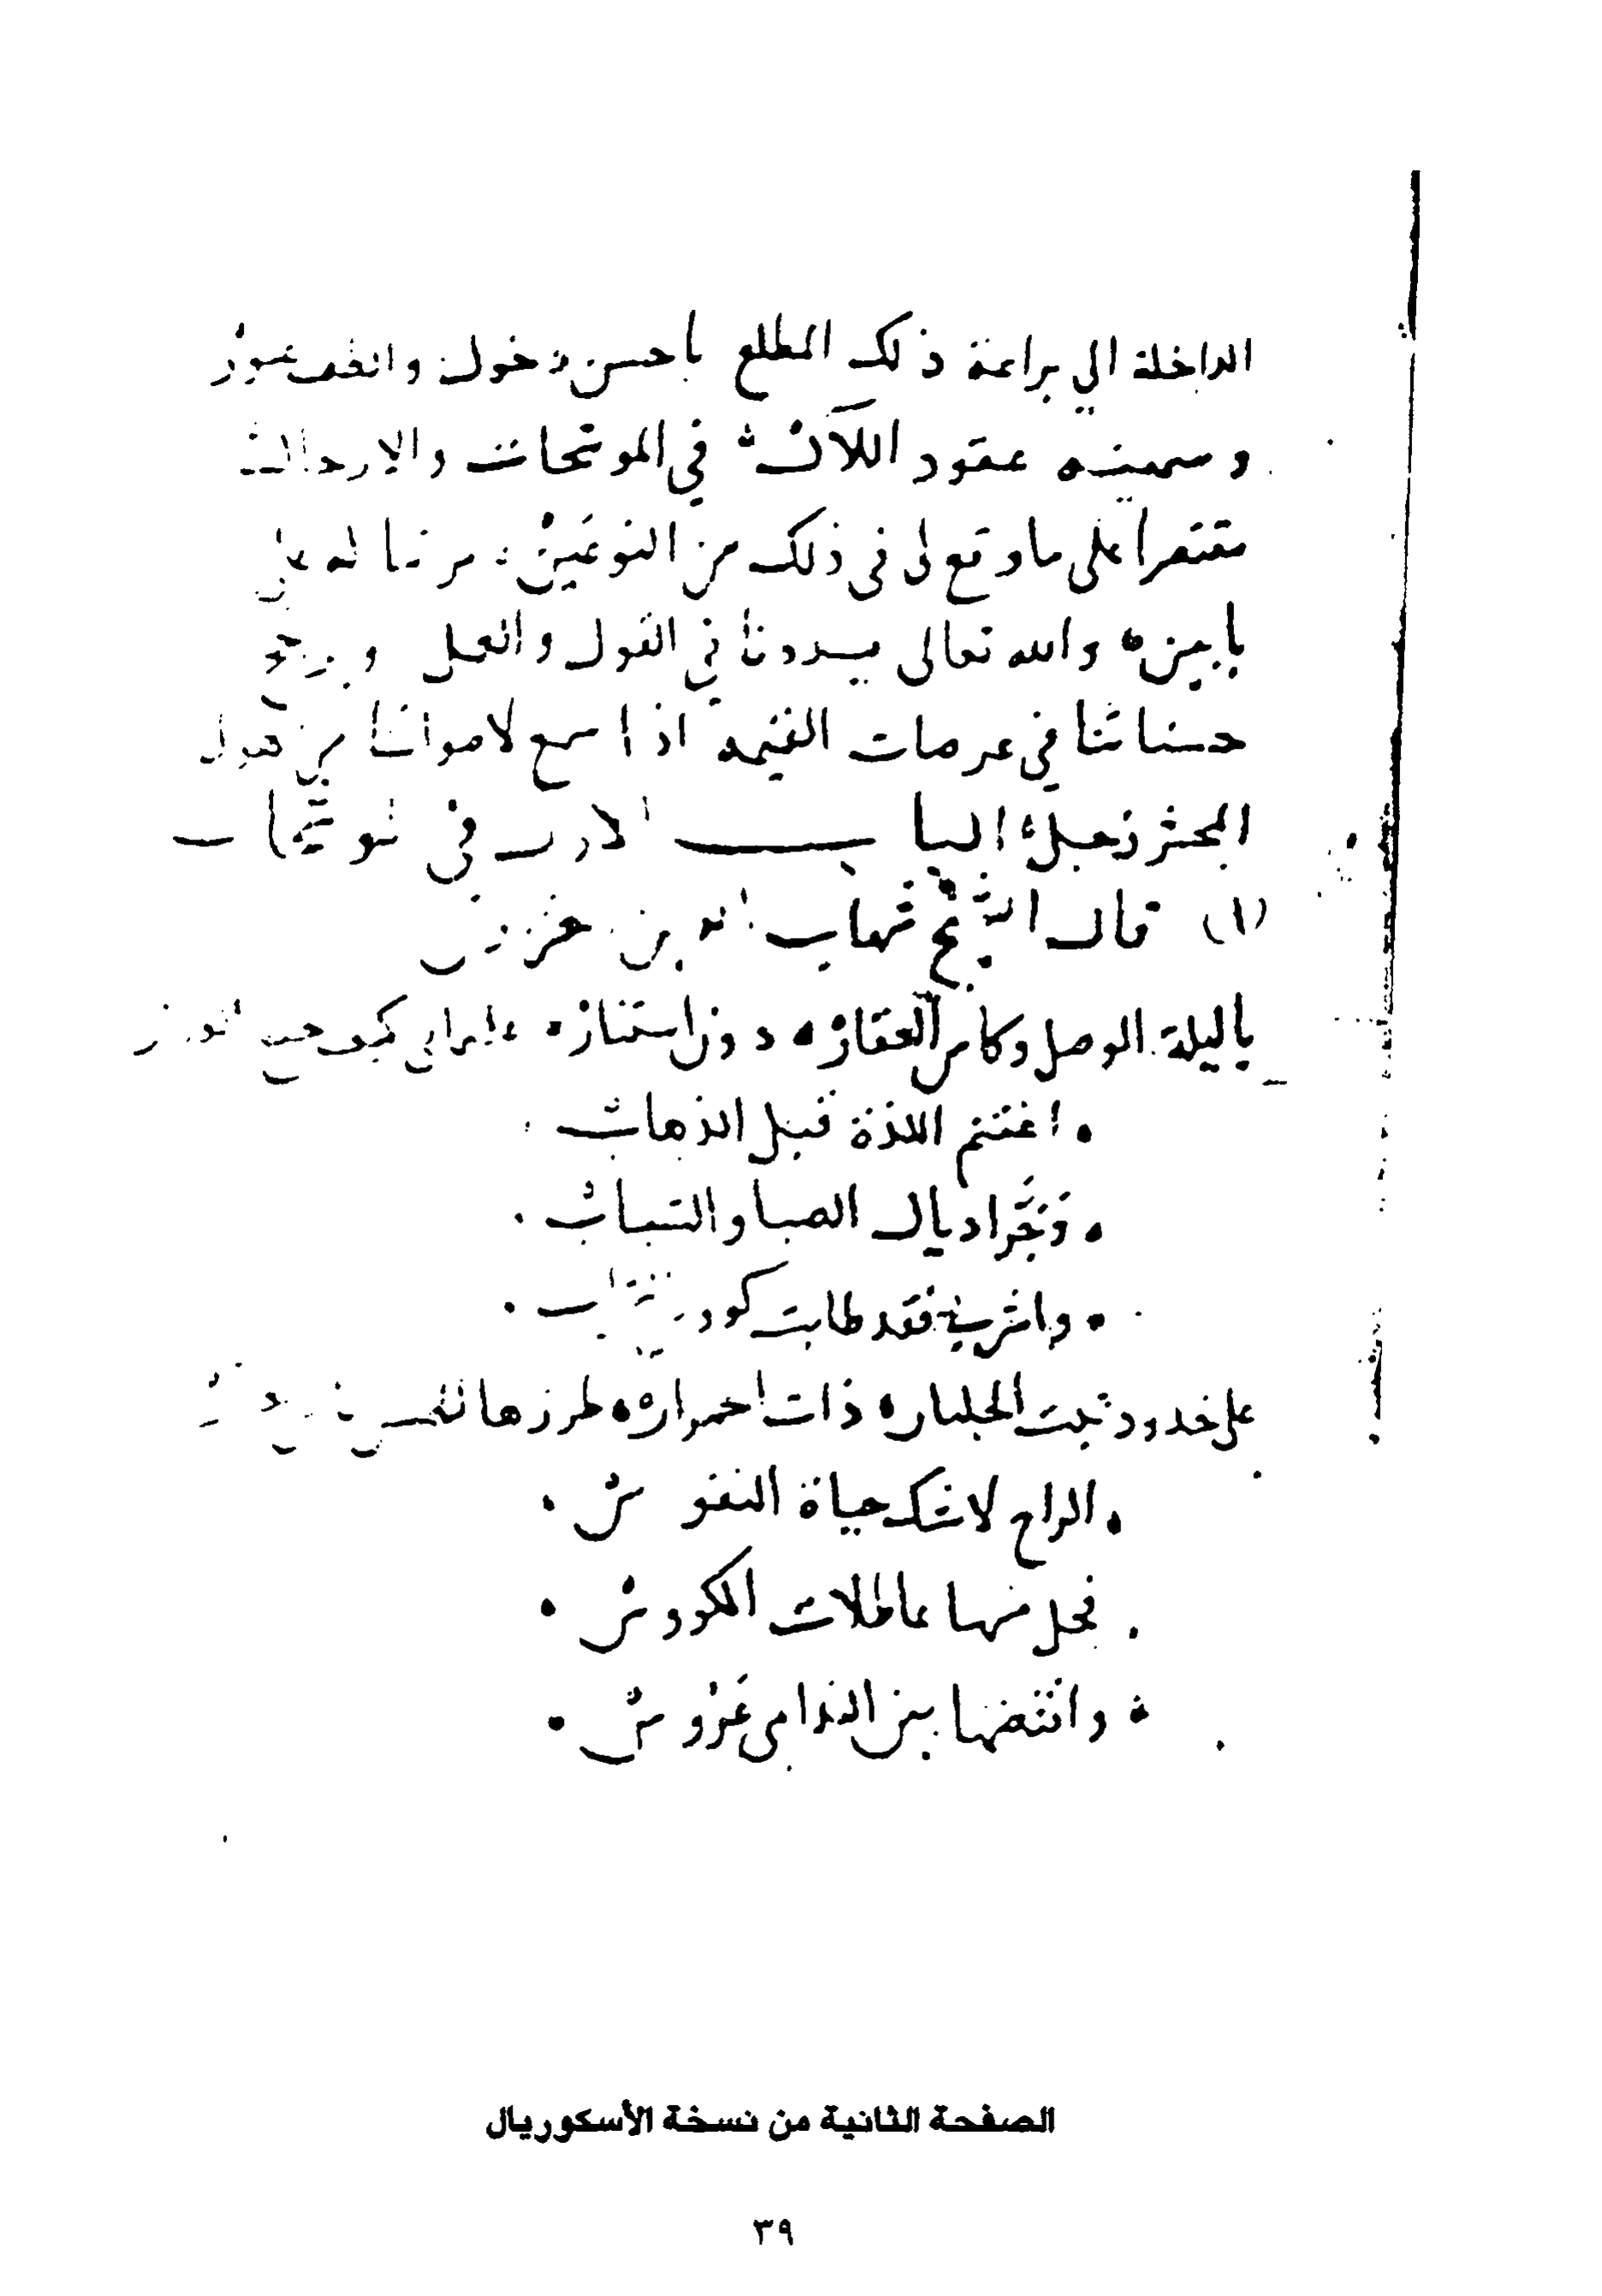 الداخلة الى براعة ذلك المطلع باحسن دخول والطف عبور
وسميته عقود اللآل في الموشحات والازجال
مقتصرا على ما وقع لى فى ذلك من النوعين مرتبا له على
بابين والله تعالى يسددنا في القول والعمل ويرجح
حسناتنا في عرصات القيمه اذا سمع لاصواتنا من هول
المحشر زجل الباب الاول فى الموشحات
(١) قال الشيخ شهاب الدين
يا ليلة الوصل وكاس العقار دون استتار علمانى كيف خلع العذار
اغتنم اللذة قبل الذهاب
وجر اذيال الصبا والشباب
واشرب فقد طابت كووس الشراب
على خدود تنبت الجلنار ذات احمرار طرزها الحسن
الراح لاشك حياة النفوس
فحل منها عاطلات الكووس
وانتضها بين الندامى عروس
الصفحة الثانية من نسخة الأسكوريال
٣٩